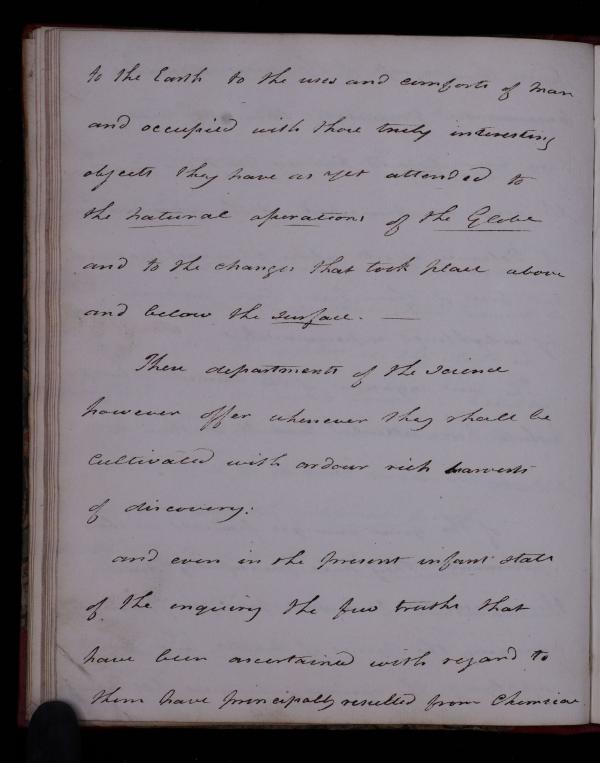 to the Earth to the uses and comforts of Man
and occupied with those truly interesting
objects they have as yet attended to
the natural operations of the Globe
and to the changes that took place above
and below the surface. —
These departments of the science
however offer whenever they shall be
cultivated with ardour rich harvests
of discovery:
and even in the present infant state
of the enquiry the few truths that
have been ascertained with regard to
them have principally resulted from Chemical